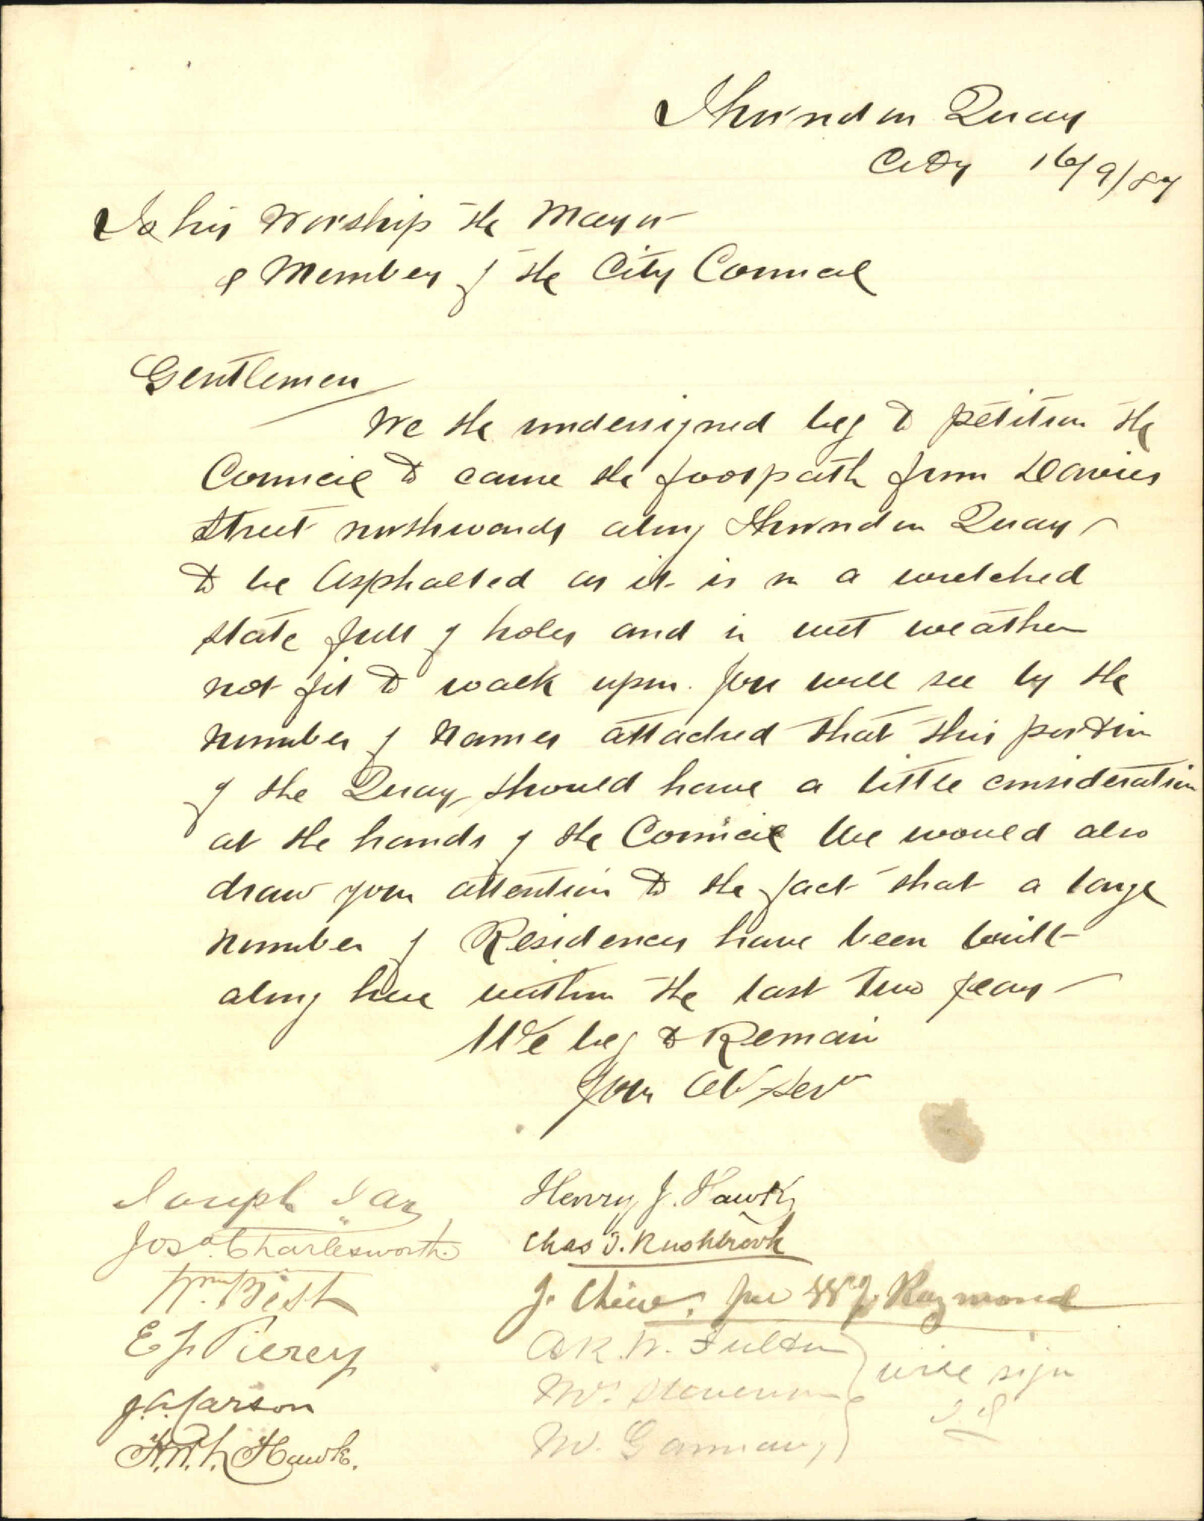 Thorndon Quay
City 16/9/87
To his Worship the Mayor
& Members of the City Council
Gentlemen
We the undersigned beg to petition the
Council to cause the footpath from Davies
Street northwards along Thorndon Quay
to be Asphalted as it is in a wretched
state full of holes and in wet weather
not fit to walk upon. You will see by the
number of names attached that this portion
of the Quay should have a little consideration
at the hands of the Council We would also
draw your attention to the fact that a large
number of Residences have been built
along here within the last two years
We beg to Remain
Your Obt Servts
Joseph
Josh. Charlesworth
Wm. Best
E J Piercy
J. A. Carson
Hawke.
Henry J. Hawke
Chas T. Rushbrook
J. Chew. per W J. Raymond
W. Fulton
Mr. Stevenson
will sign
Mr.